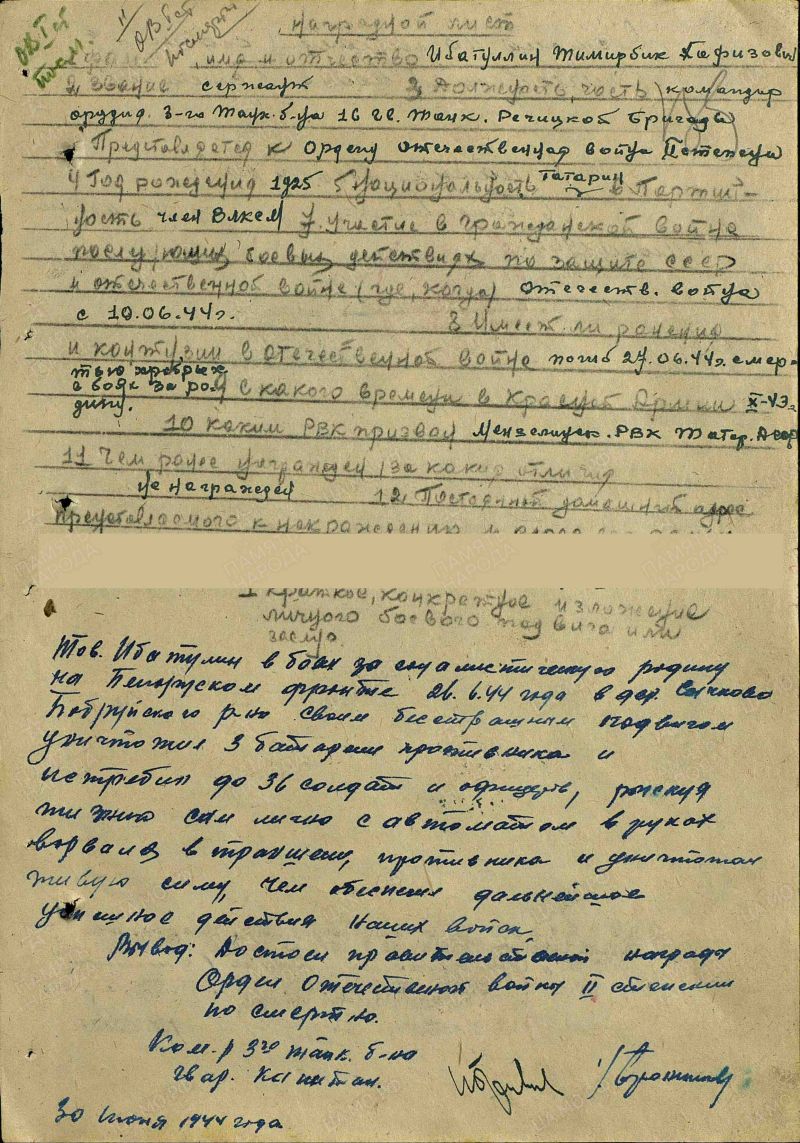 ОВ I ст
посмер.
"
ОВ II ст
посмертн
наградной лист
, имя и отчество Ибатуллин Тимирбик Хафизович
2, Звание сержант 3, Должность, часть командир
орудия. 3-го Танк. б-на 16 гв. Танк. Речицкой бригады
Представляется к Ордену Отечественная война II степени
4 Год рождения 1925 5 национальность Татарин 6 Партий-
ность член Влксм 7. участие в гражданской войне
последующих боевых действиях по защите СССР
и отечественной войне (где, когда) отечеств. война
с 10.06.44г. 8 Имеет ли ранения
и контузии в отечественной войне погиб 27.06.44г. смер-
тью храбрых
в боях за ро-
дину.
9 с какого времени в Красной Армии X-43г
10 каким РВК призван Мензелинск. РВК Татар. Асср
11 Чем ранее награжден за какие отличия
не награжден 12, Постоянный домашний адрес
представляемого к награждению и адрес его семьи
I краткое, конкретное изложение
личного боевого подвига или
заслуг
Тов. Ибатулин в боях за социалистическую родину
на Белорусском фронте 26.6.44 года в дер. Сычково
Бобруйского р-на своим бесстрашным подвигом
уничтожил 3 батареи противника и
истребил до 36 солдат и офицеров, рискуя
жизнью сам лично с автоматом в руках
ворвался в траншеи, противника и уничтожал
живую силу, чем обеспечил дальнейшее
успешное действия наших войск.
Вывод: Достоин правительственной награды
Орден Отечественной войны II степени
по смертно.
Ком. р 3го танк. б-на
гвар. капитан.
30 июня 1944 года